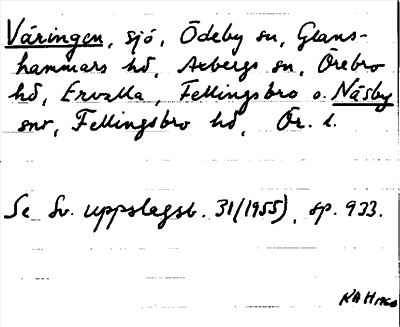 Väringen, sjö, Ödeby sn, Glans-
hammars hd, Axbergs sn, Örebro
hd, Ervalla, Fellingsbro o. Näsby
snr, Fellingsbro hd, Ör. l.
Se Sv. uppslagsb. 31 (1955), sp. 933.
KAH 1960